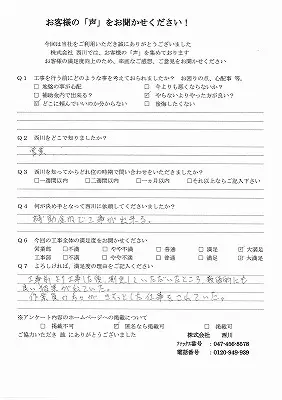 お客様の「声」をお聞かせください!
今回は当社をご利用いただき誠にありがとうございました
株式会社 西川では、お客様の「声」を集めております
お客様の満足度向上のため、率直なご感想、ご意見をお聞かせください
Q1 工事を行う前にどのような事を考えておられましたか? お困りの点、心配事 等。
□地盤の事が心配 □今よりも悪くならないか?
□補助金内で出来る? ☑やらないよりやった方が良い?
☑どこに頼んでいいのか分からない □後悔したくない
Q2 西川をどこで知りましたか?
営業
Q3 西川を知ってからどれ位の時期で問い合わせをいただきましたか?
□一週間以内 □二週間以内 □一ヵ月以内 □それ以上ならご記入下さい
Q4 何が決め手となって西川に依頼してくださいましたか?
補助金内で工事が出来る。
Q6 今回の工事全体の満足度をお聞かせください
営業部 □不満 □やや不満 □普通 □満足 ☑大満足
工事部 □不満 □やや不満 □普通 □満足 ☑大満足
Q7 よろしければ、満足度の理由をご記入ください
良い結果が出ていた。
※アンケート内容のホームページへの掲載について
□掲載不可 ☑匿名なら掲載可 □掲載可
ご協力いただき 誠 にありがとうございました
株式会社 西川
ファックス番号 : 047-456-8578
電話番号 : 0120-949-939